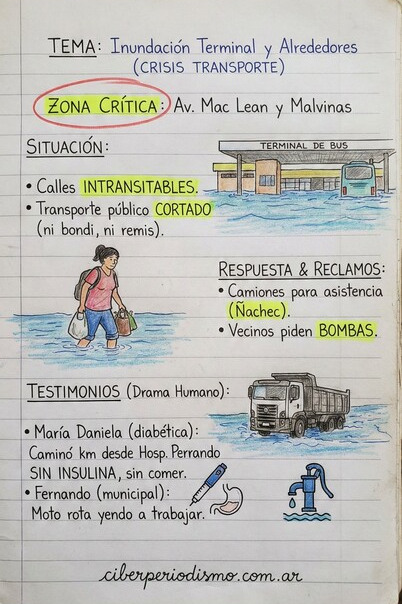 TEMA: Inundación Terminal y Alrededores
(CRISIS TRANSPORTE)
ZONA CRÍTICA: Av. Mac Lean y Malvinas
SITUACIÓN:
TERMINAL DE BUS
• Calles INTRANSITABLES.
• Transporte público CORTADO
(ni bondi, ni remis).
RESPUESTA & RECLAMOS:
• Camiones para asistencia
(Ñachec).
• Vecinos piden BOMBAS.
TESTIMONIOS (Drama Humano):
• María Daniela (diabética):
Caminó km desde Hosp. Perrando
SIN INSULINA, sin comer.
• Fernando (municipal):
Moto rota yendo a trabajar.
ciberperiodismo.com.ar